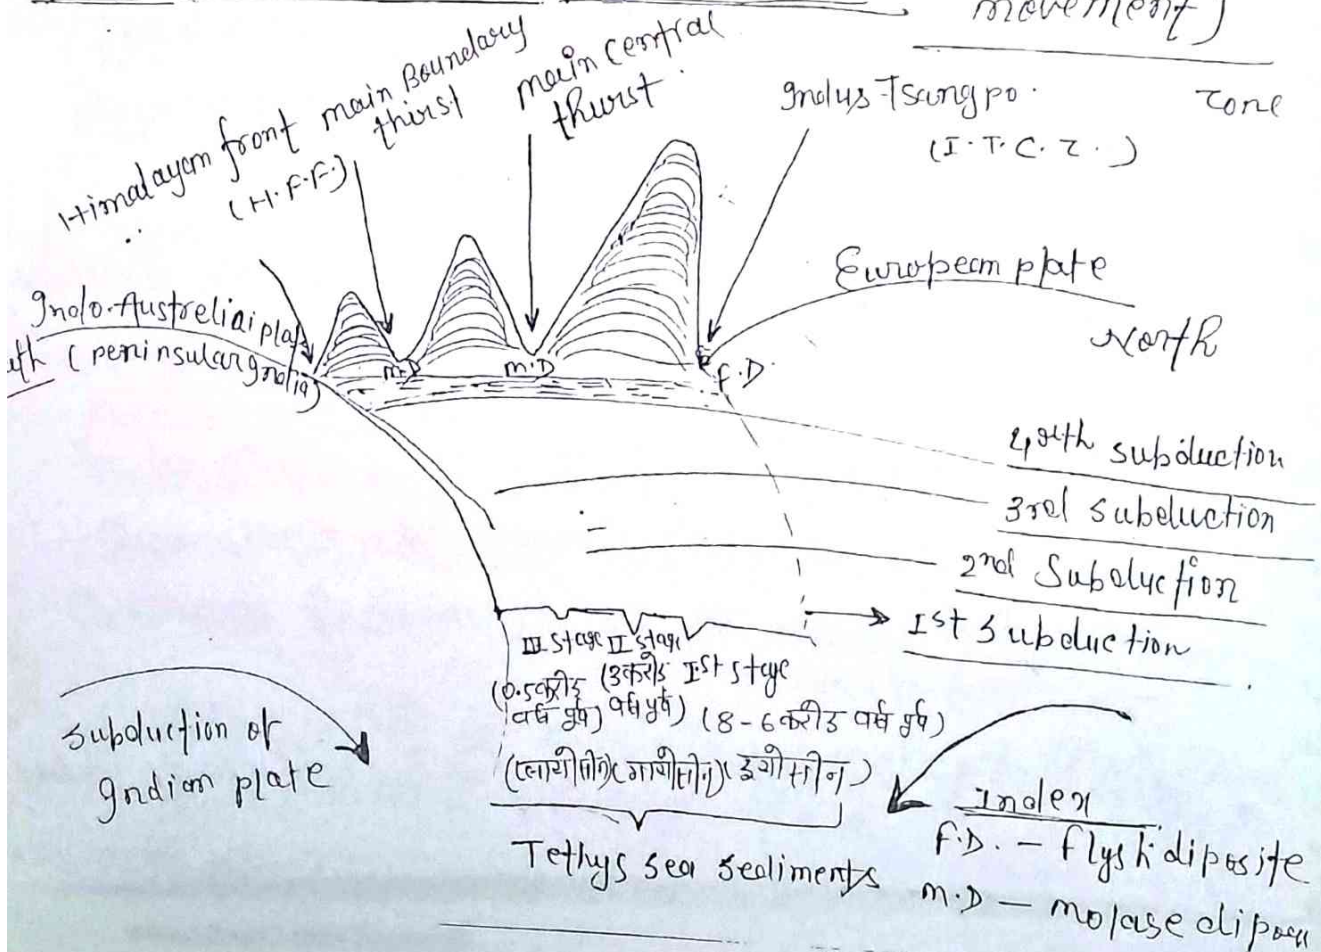 movement)
Himalayam front
(H.F.F.)
main Boundary
thirst
main central
thurst
Indus-Tsangpo.
zone
(I.T.C.Z.)
Europeam plate
North
Indo-Austreliai plat
uth (peninsular India)
M.D
M.D
F.D.
4rth subduction
3rd subduction
2nd Subduction
Ist subduction
III stage II stage
Ist stage
(0.5 करोड़ वर्ष पूर्व)
(3 करोड़ वर्ष पूर्व)
(8-6 करोड वर्ष पूर्व)
(प्लायोसीन) (मायोसीन) (इयोसीन)
Tethys sea sediments
subduction of
Indian plate
Index
F.D. - flysh diposite
M.D - molase